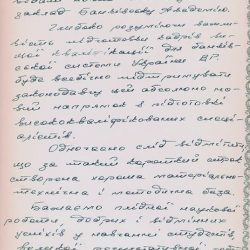 заклад банківську Академію.
Глибоко розуміючи важли-
вість підготовки кадрів ви-
щої кваліфікації для банків-
ської системи України ВР
буде всебічно підтримувати
законодавчу цей абсолютно но-
вий напрямок в підготовці
висококваліфікованих спеці-
алістів.
Одночасно слід відмітити
що за такий короткий строк
створена хороша матеріально-
технічна і методична база.
Бажаємо плідної наукової
роботи, добрих і відмінних
успіхів у навчанні студентів,